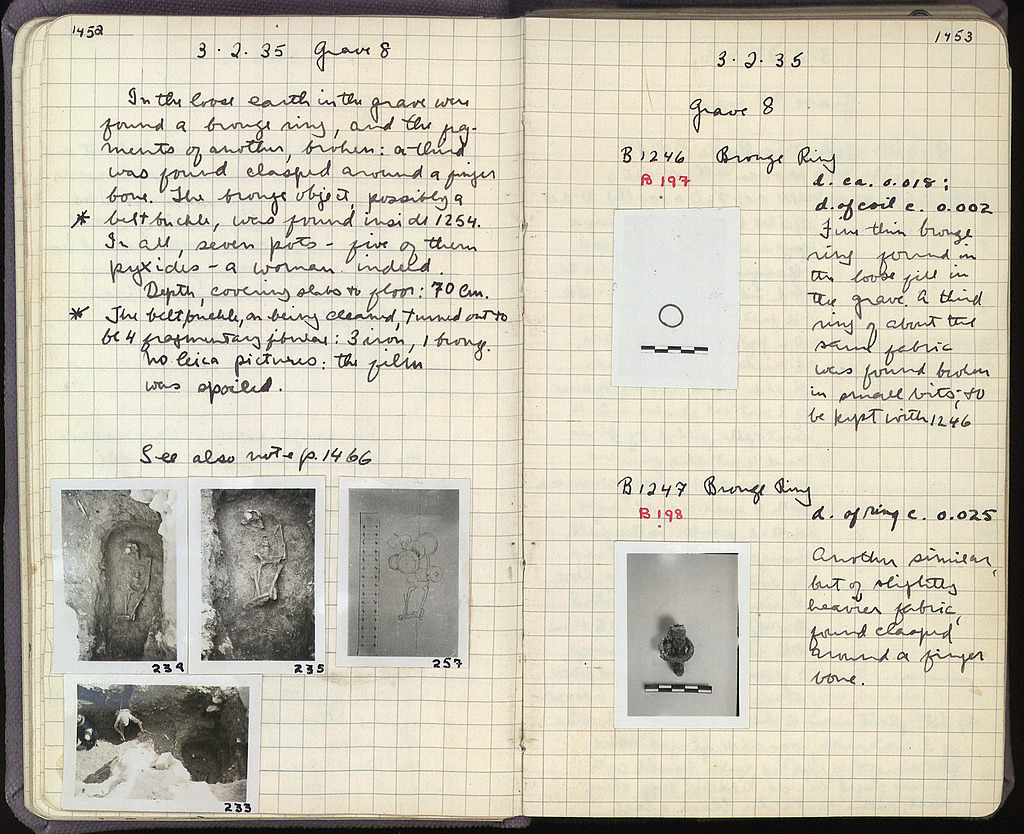 1452
3.2.35 Grave 8
In the loose earth in the grave were
found a bronze ring, and the frg-
ments of another, broken: a third
was found clasped around a finger
bone. The bronze object, possibly a
* belt buckle, was found inside 1254.
In all, seven pots - five of them
pyxides - a woman indeed.
Depth, covering slabs to floor: 70 cm.
* The belt buckle, on being cleaned, turned out to
be 4 fragmentary fibulae: 3 iron, 1 bronze.
No Leica pictures: the film
was spoiled.
See also note p. 1466
234
235
257
233
1453
3.2.35
Grave 8
B 1246 Bronze Ring
B 197
d. ca. 0.018;
d. of coil c. 0.002
Fine thin bronze
ring found in
the loose fill in
the grave. A third
ring of about the
same fabric
was found broken
in small bits; to
be kept with 1246
B 1247 Bronze Ring
B 198
d. of ring c. 0.025
Another similar,
but of slightly
heavier fabric,
found clasped
around a finger
bone.